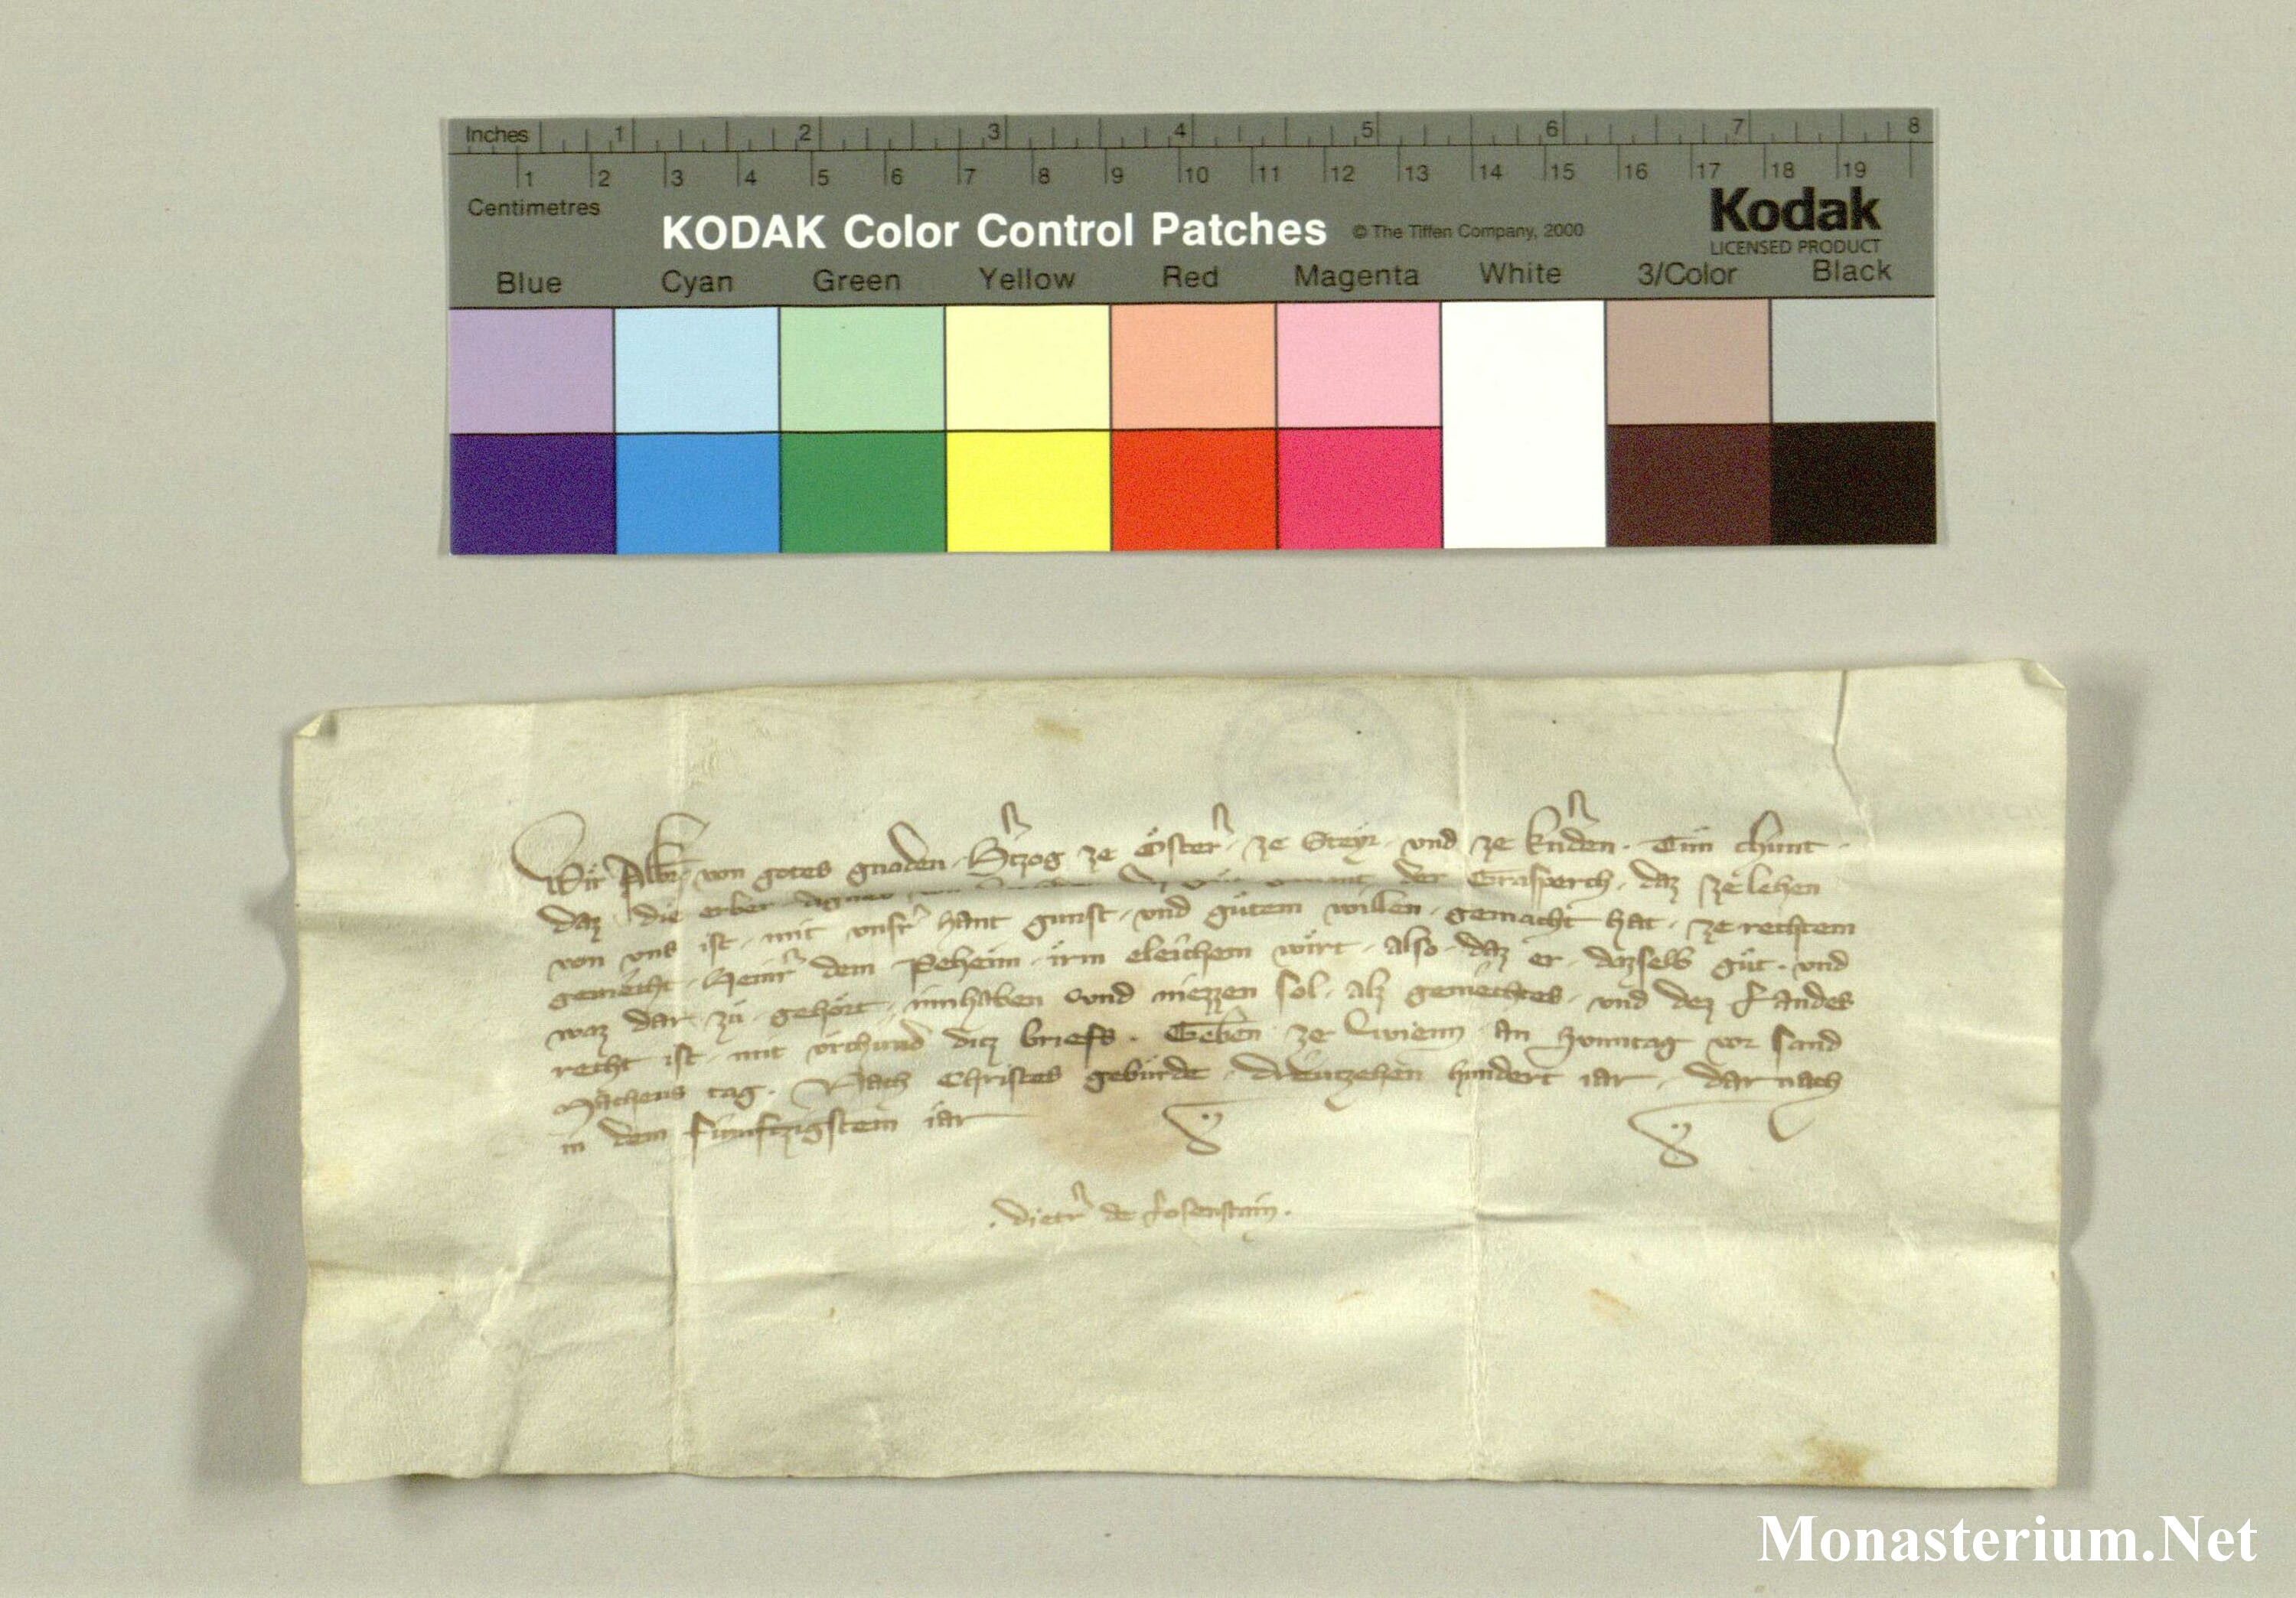 Inches 1 2 3 4 5 6 7 8
1 2 3 4 5 6 7 8 9 10 11 12 13 14 15 16 17 18 19
Centimetres
KODAK Color Control Patches © The Tiffen Company, 2000 Kodak
LICENSED PRODUCT
Blue Cyan Green Yellow Red Magenta White 3/Color Black
Wir Albr von gotes gnaden Hꝛtzog ze Öster ze Steyr und ze kernden. Tun chunt
daz die erber Agnes der Grasperch, daz ze lehen
von uns ist, mit unsr hant gunst, und gütem willen, gemacht hat, ze rechtem
gemecht, Heinr dem Peheim, irm eleichem wirt, also daz er, dazselb güt, und
waz dar zu gehört, innhaben und niezzen sol, alz gemechtes, und dez Landes
recht ist, mit urchund ditz briefs. Geben ze Wienn an Sunntag vor sand
Mathens tag. Nach Christes gebürde, dreutzehen hundert iar, dar nach
in dem fümftzigstem iar
. dietr de Losenstain .
Monasterium.Net